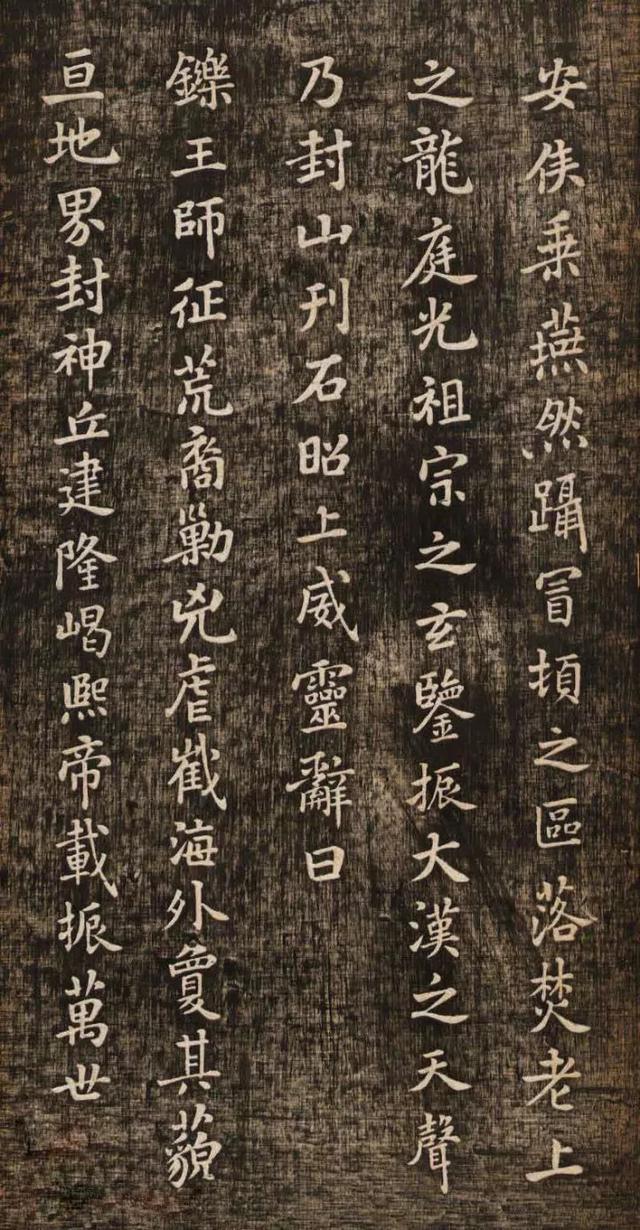 安侯乗燕然躡冒頓之區落焚老上
之龍庭光祖宗之玄鑒振大漢之天聲
乃封山刊石昭上威靈辭曰
鑠王師征荒裔勦兇虐截海外夐其藐
亘地界封神丘建隆嵑熙帝載振萬世